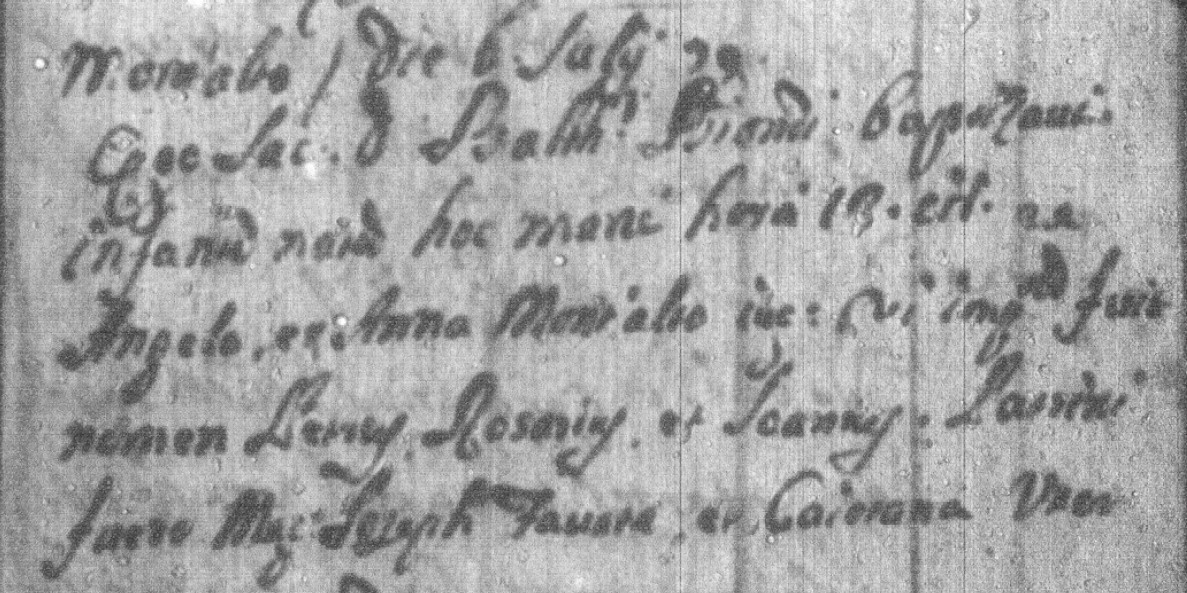 Montalbo / die 6 Julij
Ego Sac. D. Balth.r Biondi baptizavi
infantē natū hoc mane hora 12. cit. ex
Angelo, et Anna Montalbo iuc: Cui imp.m fuit
nomen Rosarius et Joannes. Patrini
fuere Mag: Joseph et Caterana Uxor